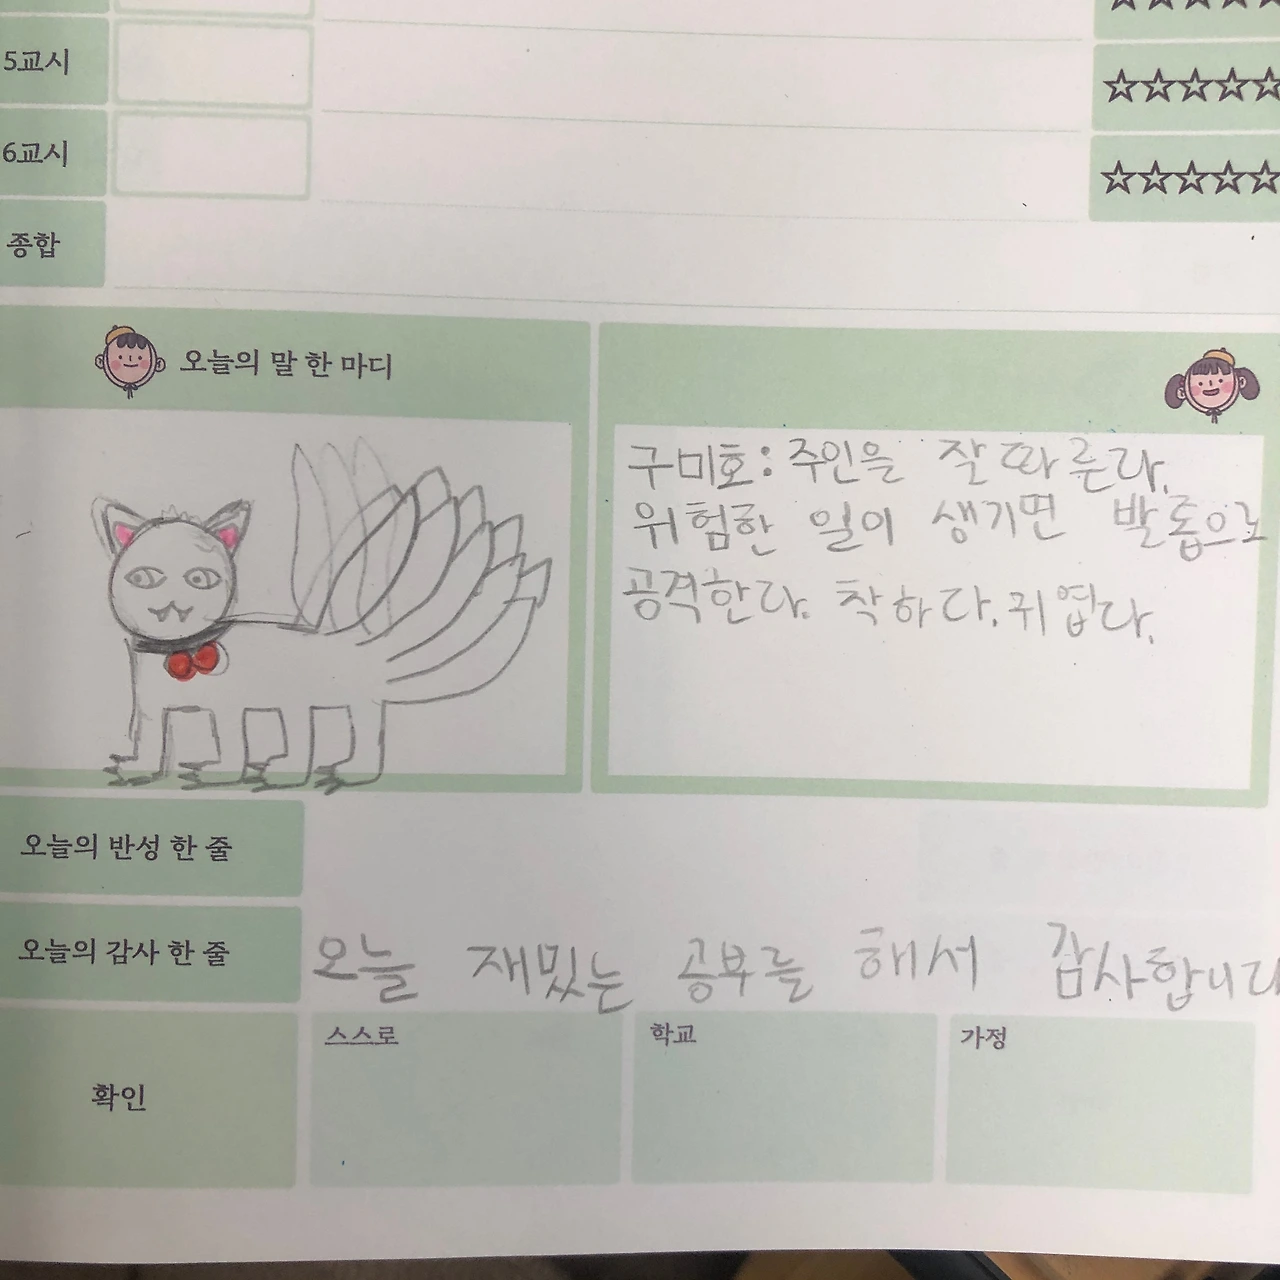 5교시 ☆☆☆☆☆
6교시 ☆☆☆☆☆
종합
오늘의 말 한 마디
구미호: 주인을 잘 따른다.
위험한 일이 생기면 발톱으로
공격한다. 착하다. 귀엽다.
오늘의 반성 한 줄
오늘의 감사 한 줄 오늘 재밌는 공부를 해서 감사합니다
확인 스스로 학교 가정